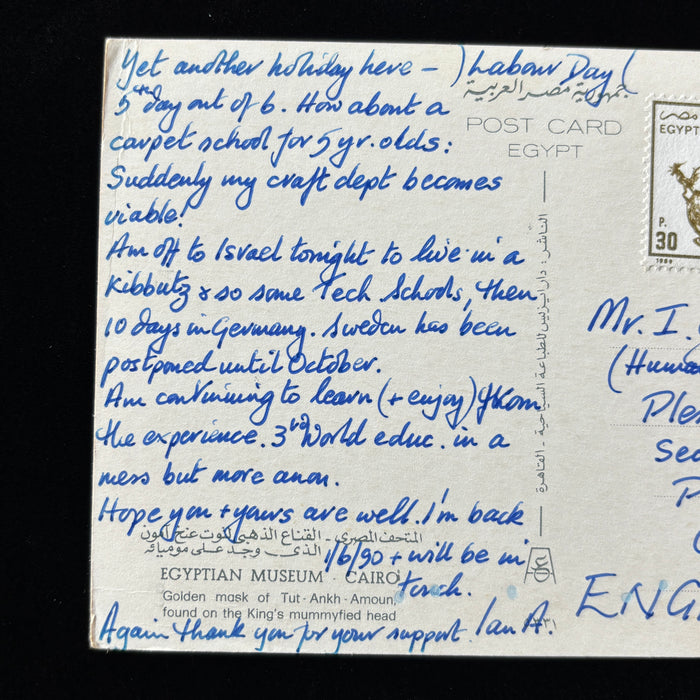 Yet another holiday here – ) Labour Day (
5th day out of 6. How about a
carpet school for 5 yr. olds:
Suddenly my craft dept becomes
viable!
Am off to Israel tonight to live in a
Kibbutz & so some Tech Schools, then
10 days in Germany. Sweden has been
postponed until October.
Am continuing to learn (+ enjoy) from
the experience. 3rd World educ. in a
mess but more anon.
Hope you + yours are well. I'm back
1/6/90 + will be in
touch.
Again thank you for your support. Ian A.
جمهورية مصر العربية
POST CARD
EGYPT
الناشر: دار ايزيس للطباعة السياحية - القاهرة
المتحف المصري - القناع الذهبي لتوت عنخ آمون
الذى وجد على موميائه
EGYPTIAN MUSEUM · CAIRO
Golden mask of Tut-Ankh-Amoun,
found on the King's mummyfied head
مصر
EGYPT
P.
30
1989
Mr. I.
(Huma
Ple
Sec
P
ENG